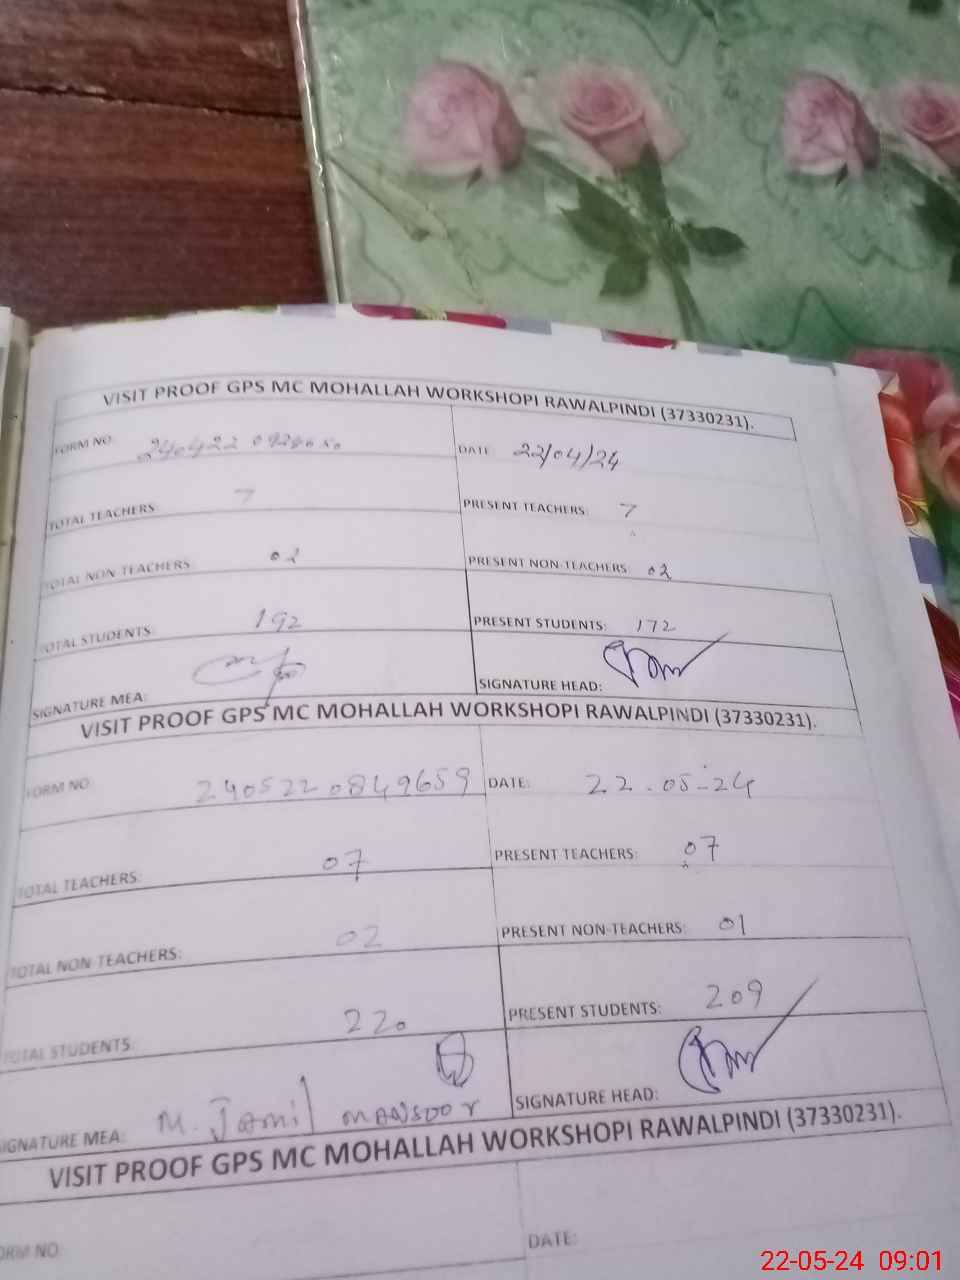 VISIT PROOF GPS MC MOHALLAH WORKSHOPI RAWALPINDI (37330231).
FORM NO: DATE: 22/04/24
TOTAL TEACHERS: 7 PRESENT TEACHERS: 7
TOTAL NON-TEACHERS: 02 PRESENT NON-TEACHERS: 02
TOTAL STUDENTS: 192 PRESENT STUDENTS: 172
SIGNATURE MEA: SIGNATURE HEAD:
VISIT PROOF GPS MC MOHALLAH WORKSHOPI RAWALPINDI (37330231).
FORM NO: 2405220849659 DATE: 22-05-24
TOTAL TEACHERS: 07 PRESENT TEACHERS: 07
TOTAL NON-TEACHERS: 02 PRESENT NON-TEACHERS: 01
TOTAL STUDENTS: 220 PRESENT STUDENTS: 209
SIGNATURE MEA: M. Jamil MANSOOR SIGNATURE HEAD:
VISIT PROOF GPS MC MOHALLAH WORKSHOPI RAWALPINDI (37330231).
FORM NO: DATE:
22-05-24 09:01